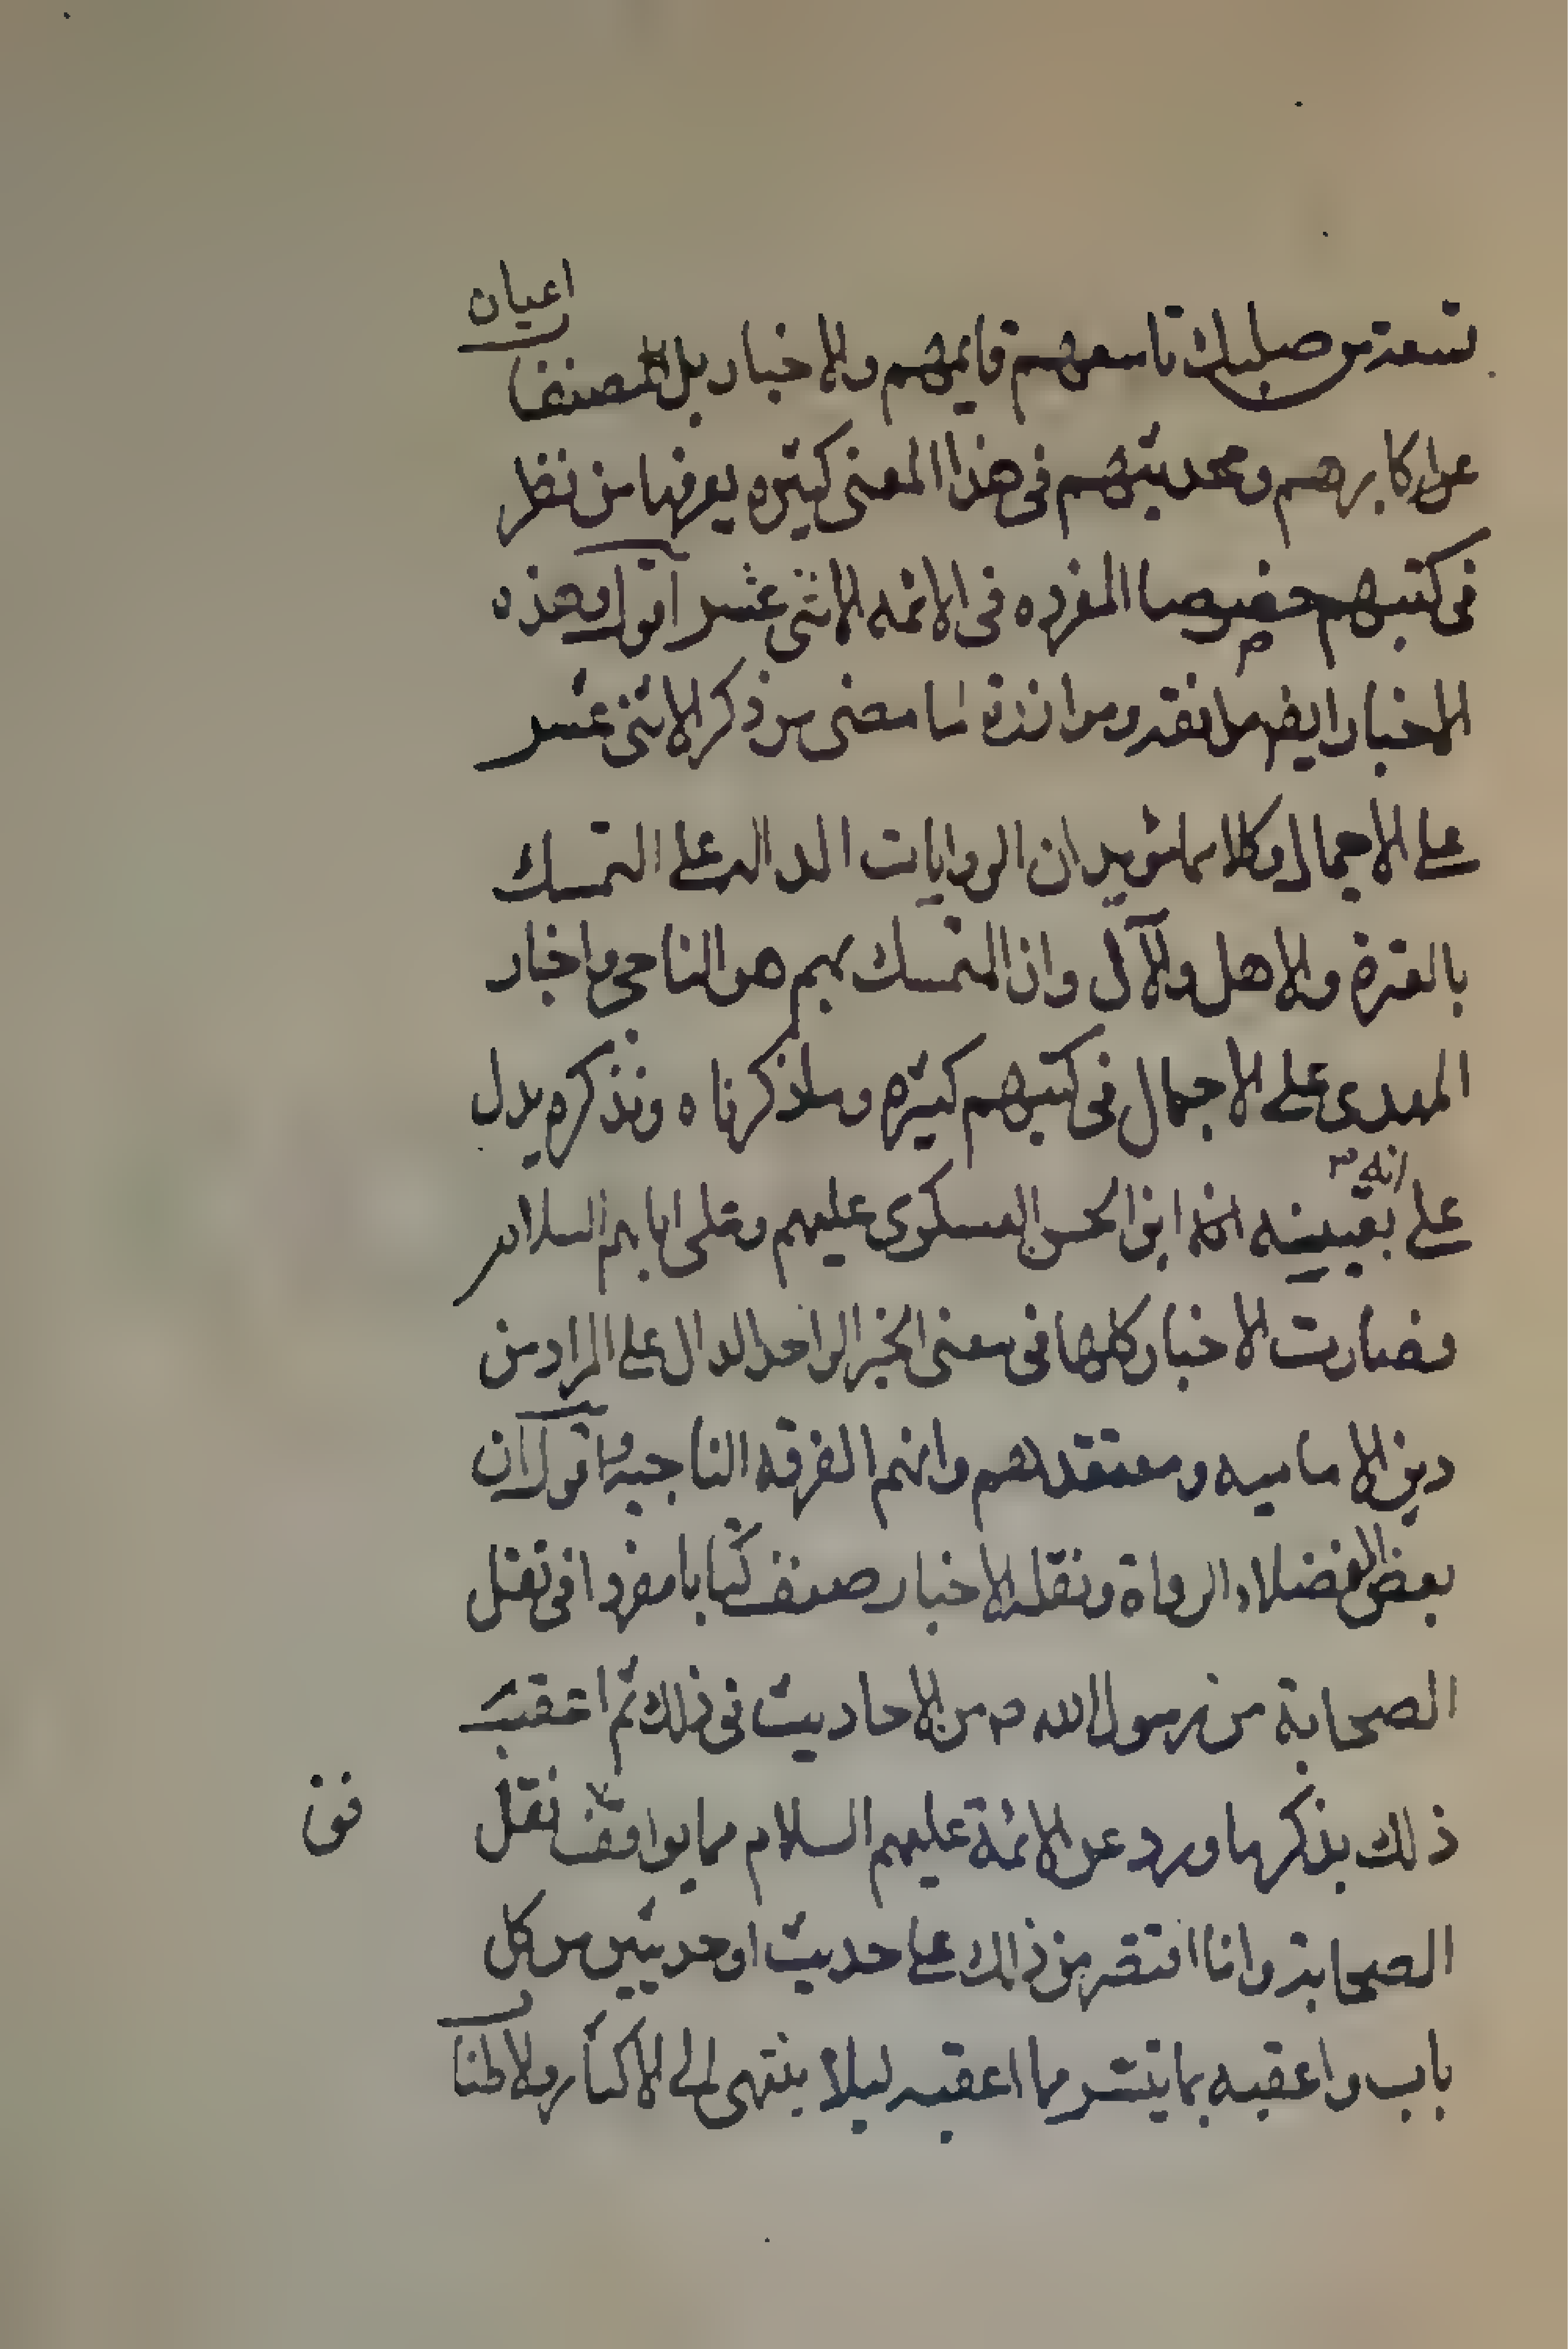 تسعة من صلبك تاسعهم قايمهم والاخبار بل المصنفا اعيان
عن اكابرهم ومحدثيهم في هذا المعنى كثيره يعرفها من نظر
في كتبهم خصوصا المفرده في الائمه الاثنى عشر اقول وهذه
الاخبار ايضا م موافقه وموازنة لما مضى من ذكر الاثنى عشر
على الاجمال وكلاهما يؤيد ان الروايات الداله على التمسك
بالعترة والاهل والآل وان المتمسك بهم هو الناجى واخبار
المهدى على الاجمال في كتبهم كثيره وما ذكرناه ونذكره يدل
على تعيينه انه ابن الحسن العسكرى عليهم وعلى ابايهم السلام
فصارت الاخبار كلها في معنى الخبر الواحد الدال على المراد من
دين الاماميه ومعتقدهم وانهم الفرقه الناجيه اقول ان
بعض الفضلاء الرواة ونقله الاخبار صنف كتابا مفردا في نقل
الصحابة من رسول الله ص من الاحاديث في ذلك ثم اعقب
ذلك بذكر ما ورد عن الائمة عليهم السلام مما يوافق نقل
الصحابة وانا اقتصر من ذلك على حديث او حديثين من كل
باب واعقبه بما يتيسر مما اعقبه ليلا ينتهى الى الاكثار والاطنا